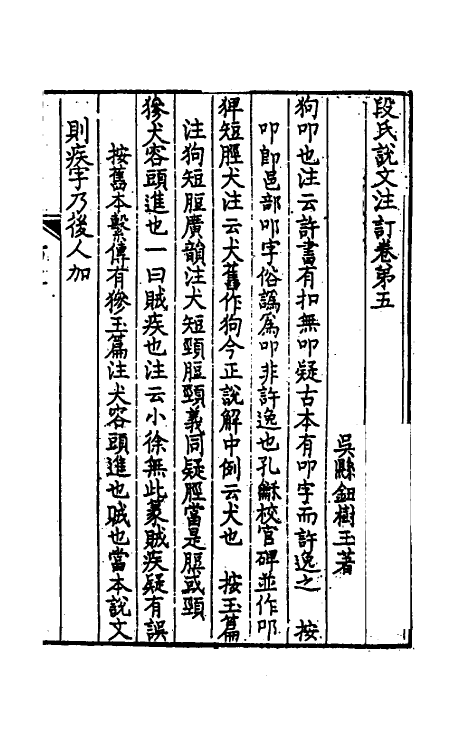 段氏說文注訂卷第五
吳縣鈕樹玉著
狗叩也注云許書有扣無叩疑古本有叩字而許逸之　按
叩卽邑部叩字俗譌爲叩非許逸也孔龢校官碑並作叩
猈短脛犬注云犬舊作狗今正說解中例云犬也　按玉篇
注狗短脰廣韻注犬短頸脰頸義同疑脛當是脰或頸
獊犬容頭進也一曰賊疾也注云小徐無此篆賊疾疑有誤
按舊本繫傳有獊玉篇注犬容頭進也賊也當本說文
則疾字乃後人加